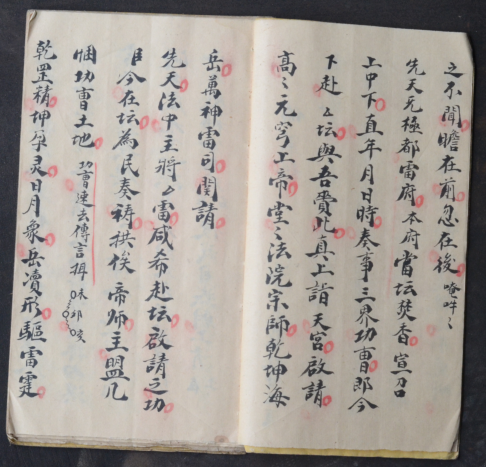 之不聞瞻在前忽在後 唵吽〻
先天无極都雷府本府當坛焚香宣召
上中下直年月日時奏事三界功曹即今
下赴厶坛與吾賫此真上詣天宮啟請
高〻元穹上帝堂〻法院宗師乾坤海
岳萬神雷司閣請
先天法中主將厶雷咸希赴坛啟請之功
今在坛為民奏禱拱俟帝师主盟凡
功曹土地 功曹速去傳言揖
乾罡精坤孕灵日月象岳凟形驅雷霆